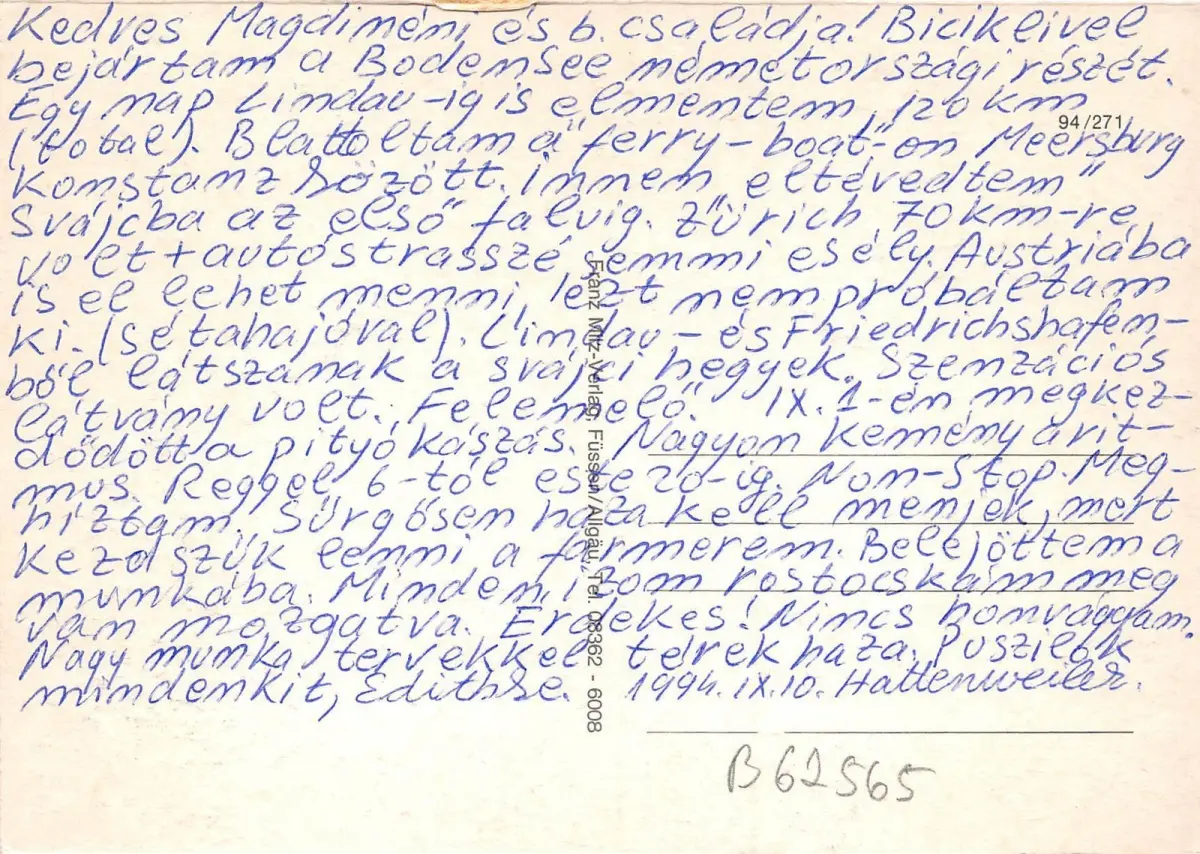 Kedves Magdinéni és b. családja! Biciklivel
bejártam a Bodensee németországi részét.
Egy nap Lindau-ig is elmentem, 120 km
94/271
(total). Blattoltam a "ferry-boat"-on Meersburg
Konstanz között. Innen "eltévedtem"
Svájcba az első falvig. Zürich 70 km-re
volt + autóstrassze semmi esély. Austriába
is el lehet menni, ezt nem próbáltam
ki. (sétahajóval). Lindau- és Friedrichshafen-
ből látszanak a svájci hegyek. Szenzációs
látvány volt. Felemelő. IX. 1-én megkez-
dődött a pityókászás. Nagyon kemény a rit-
mus. Reggel 6-tól este 20-ig. Non-Stop. Meg-
híztam. Sürgősen haza kell menjek, mert
kezd szűk lenni a farmerem. Belejöttem a
munkába. Minden izom rostocskám meg
van mozgatva. Érdekes! Nincs honvágyam.
Nagy munka tervekkel térek haza. Puszilok
mindenkit, Edithke. 1994. IX. 10. Hattenweiler.
Franz Milz-Verlag, Füssen/Allgäu, Tel. 08362 - 6008
B 62565